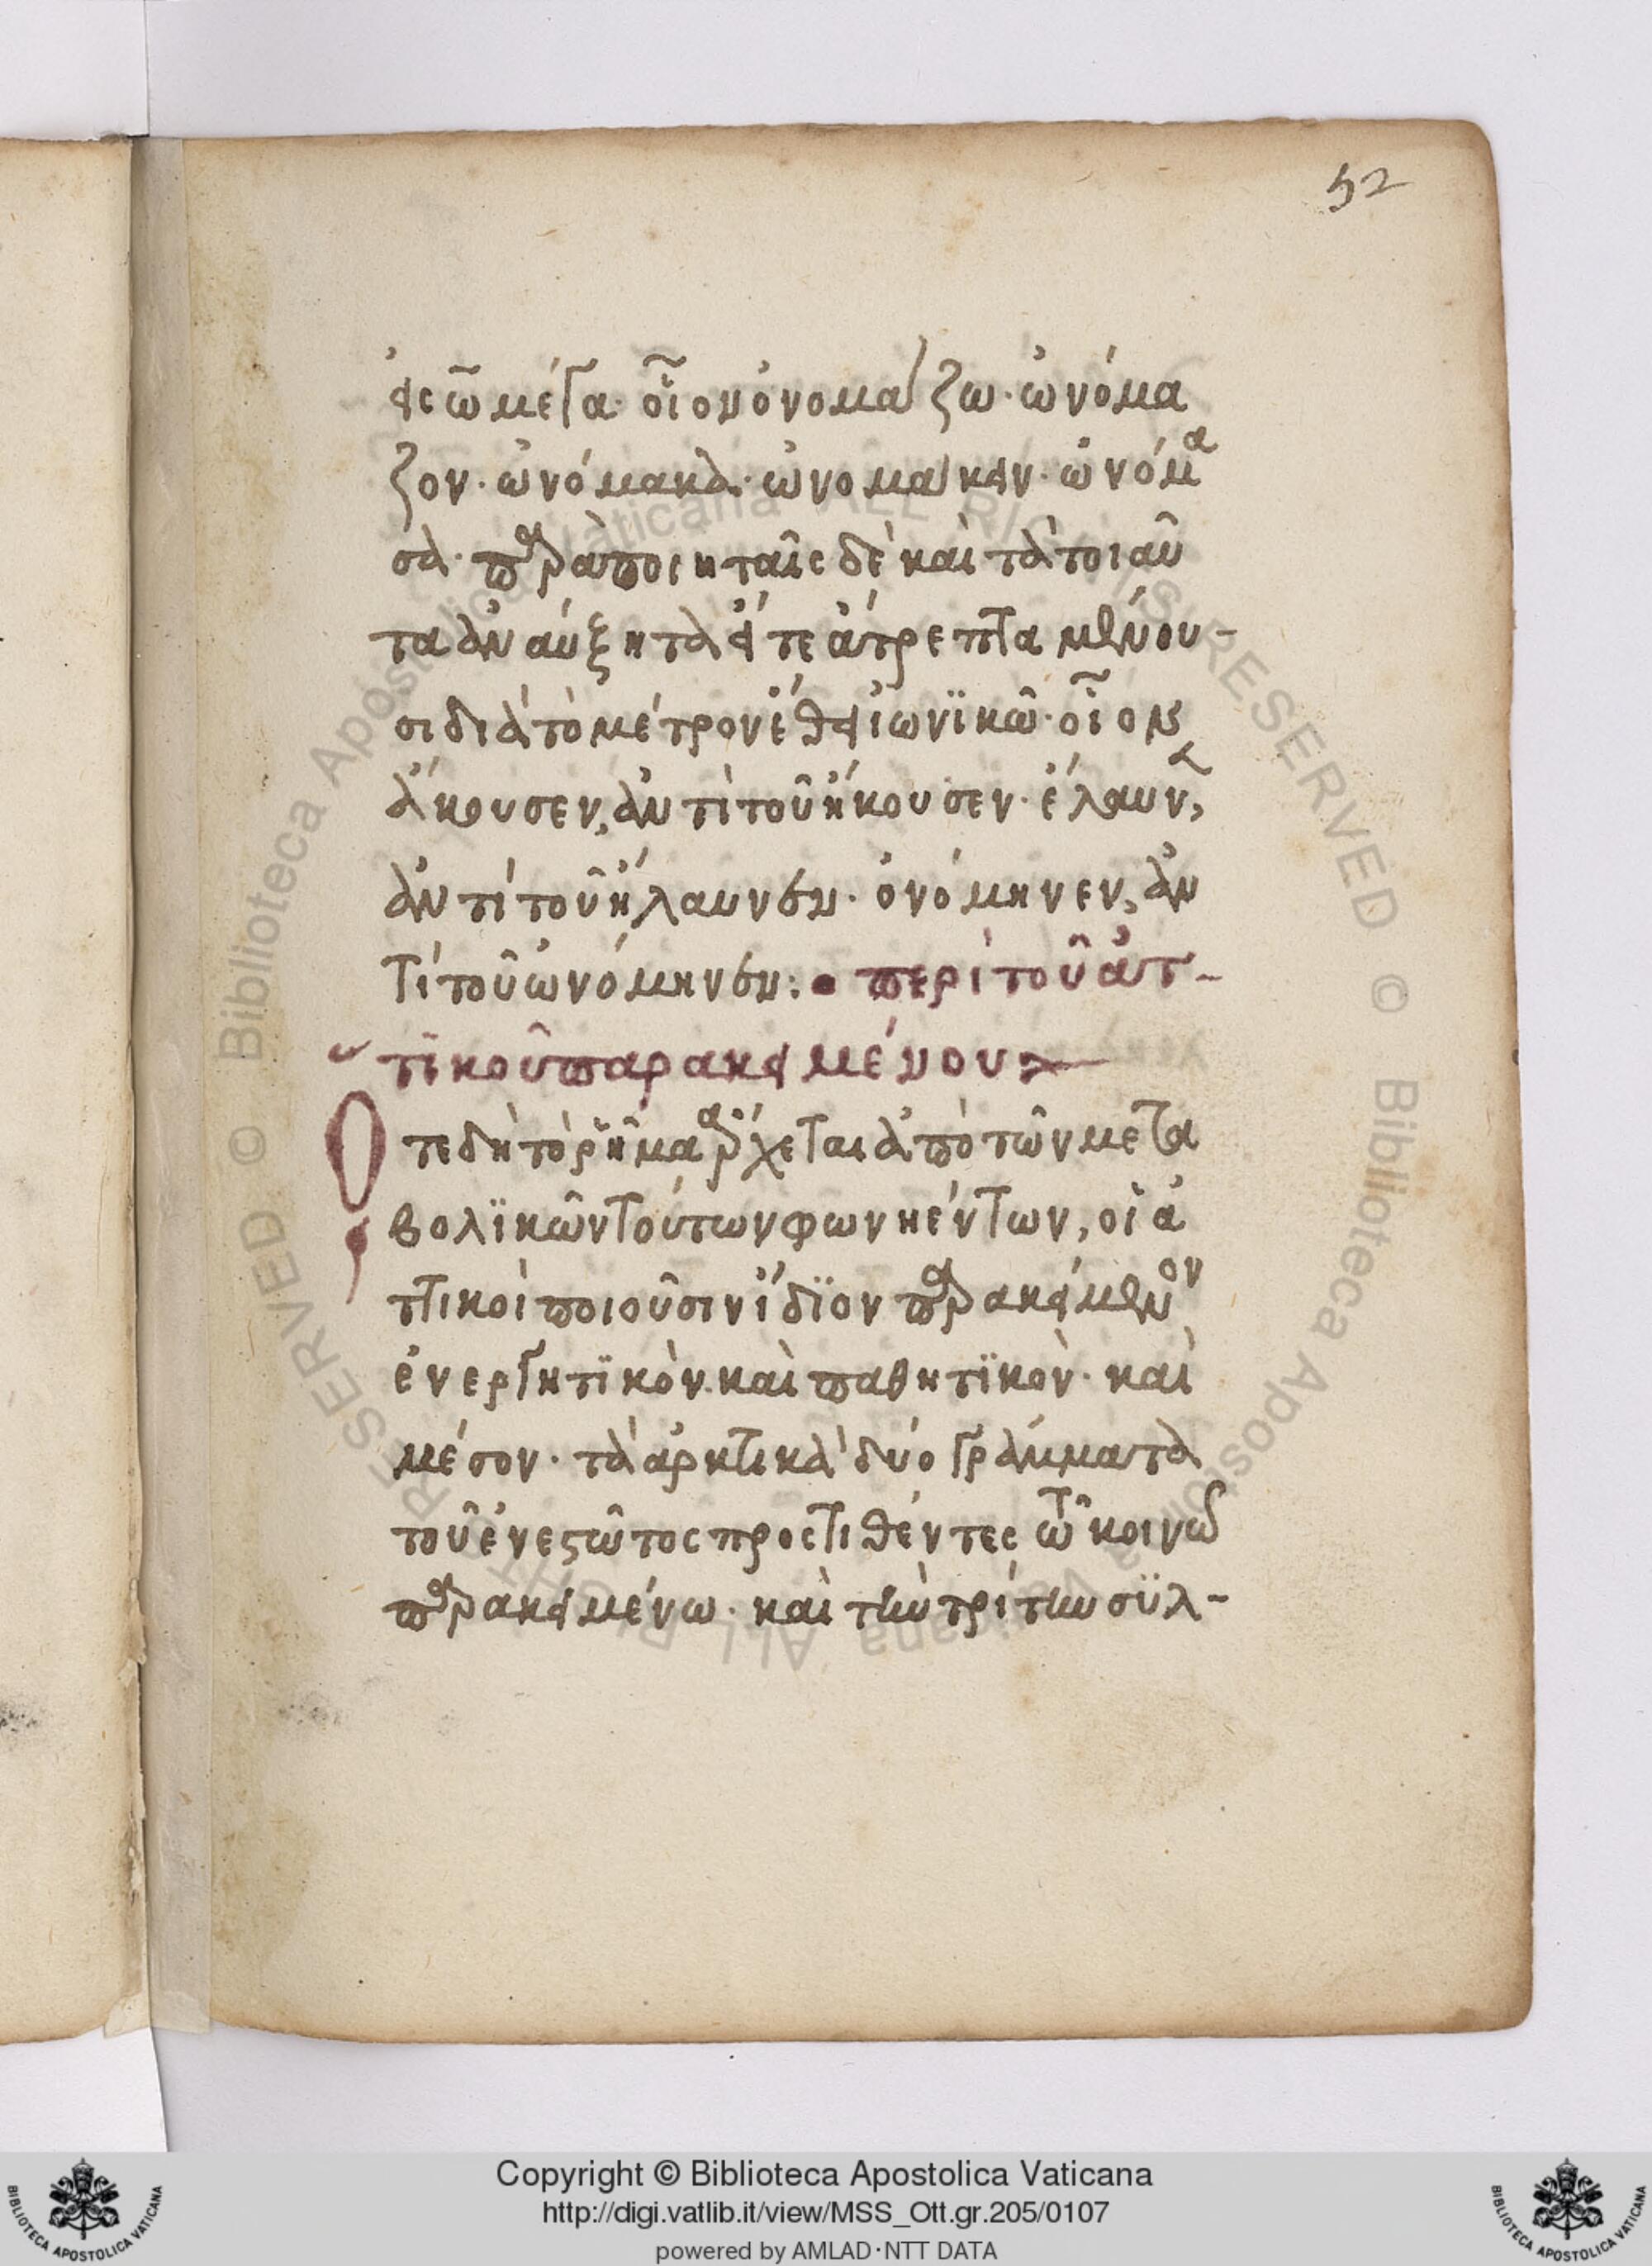 52
εἰς ω̃ μέγα· οἷον ὀνομάζω· ὠνόμα
ζον· ὠνόμακα· ὠνομάκειν· ὠνόμα
σα· παρὰ ποιηταῖς δὲ καὶ τὰ τοιαῦ
τα ἀναύξητα εἴτε ἄτρεπτα μένου-
σι διὰ τὸ μέτρον ἔθει ἰωνϊκῶ· οἷον
ἄκουσεν, ἀντὶ τοῦ ἤκουσεν· ἔλαυνεν,
ἀντὶ τοῦ ἤλαυνεν· ὀνόμηνεν, ἀν
τί τοῦ ὠνόμηνεν: • περὶ τοῦ ἀτ-
τϊκοῦ παρακειμένου
Οτε δὴ τὸ ῥῆμα ἄρχεται ἀπὸ τῶν μετα
βολϊκῶν τούτων φωνηέντων, οἱ ἀ
ττικοὶ ποιοῦσιν ἴδϊον παρακείμενον
ἐνεργητϊκὸν. καὶ παθητϊκὸν· καὶ
μέσον· τὰ ἀρκτικὰ δύο γράμματα
τοῦ ἐνεστῶτος προςτιθέντες τῶ κοινῶ
παρακειμένω· καὶ τὴν τρίτην σϋλ-
Copyright © Biblioteca Apostolica Vaticana
http://digi.vatlib.it/view/MSS_Ott.gr.205/0107
powered by AMLAD·NTT DATA
BIBLIOTECA APOSTOLICA VATICANA
BIBLIOTECA APOSTOLICA VATICANA